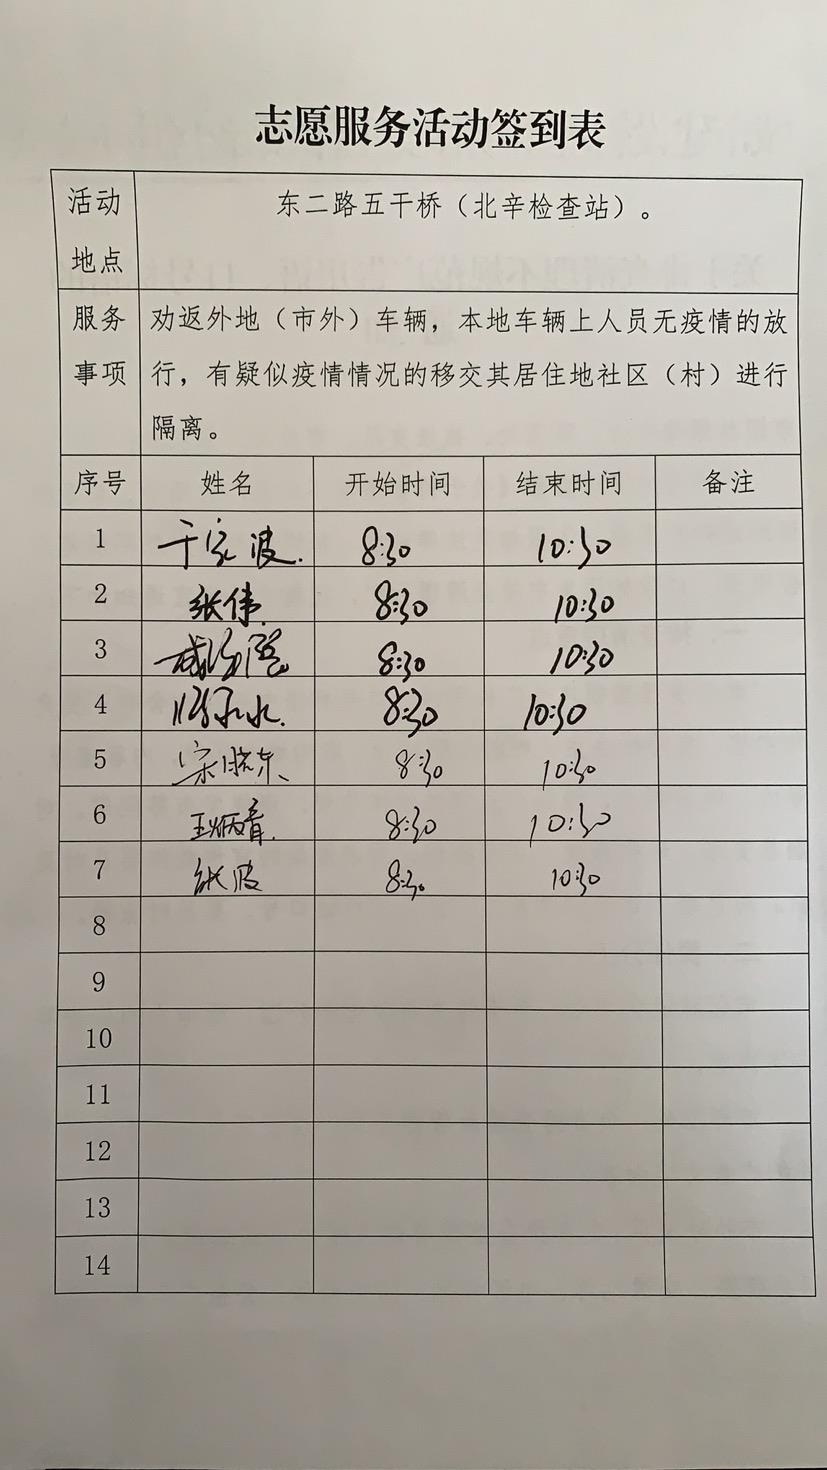 志愿服务活动签到表
活动地点 东二路五干桥（北辛检查站）。
服务事项 劝返外地（市外）车辆，本地车辆上人员无疫情的放
行，有疑似疫情情况的移交其居住地社区（村）进行
隔离。
序号 姓名 开始时间 结束时间 备注
1 于家波. 8:30 10:30
2 张伟. 8:30 10:30
3 8:30 10:30
4 8:30 10:30
5 宋晓东、 8:30 10:30
6 王炳章. 8:30 10:30
7 张波 8:30 10:30
8
9
10
11
12
13
14